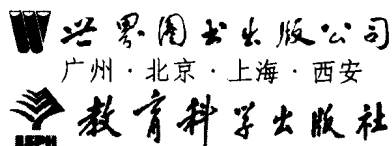 世界图书出版公司
广州·北京·上海·西安
教育科学出版社
ESPH